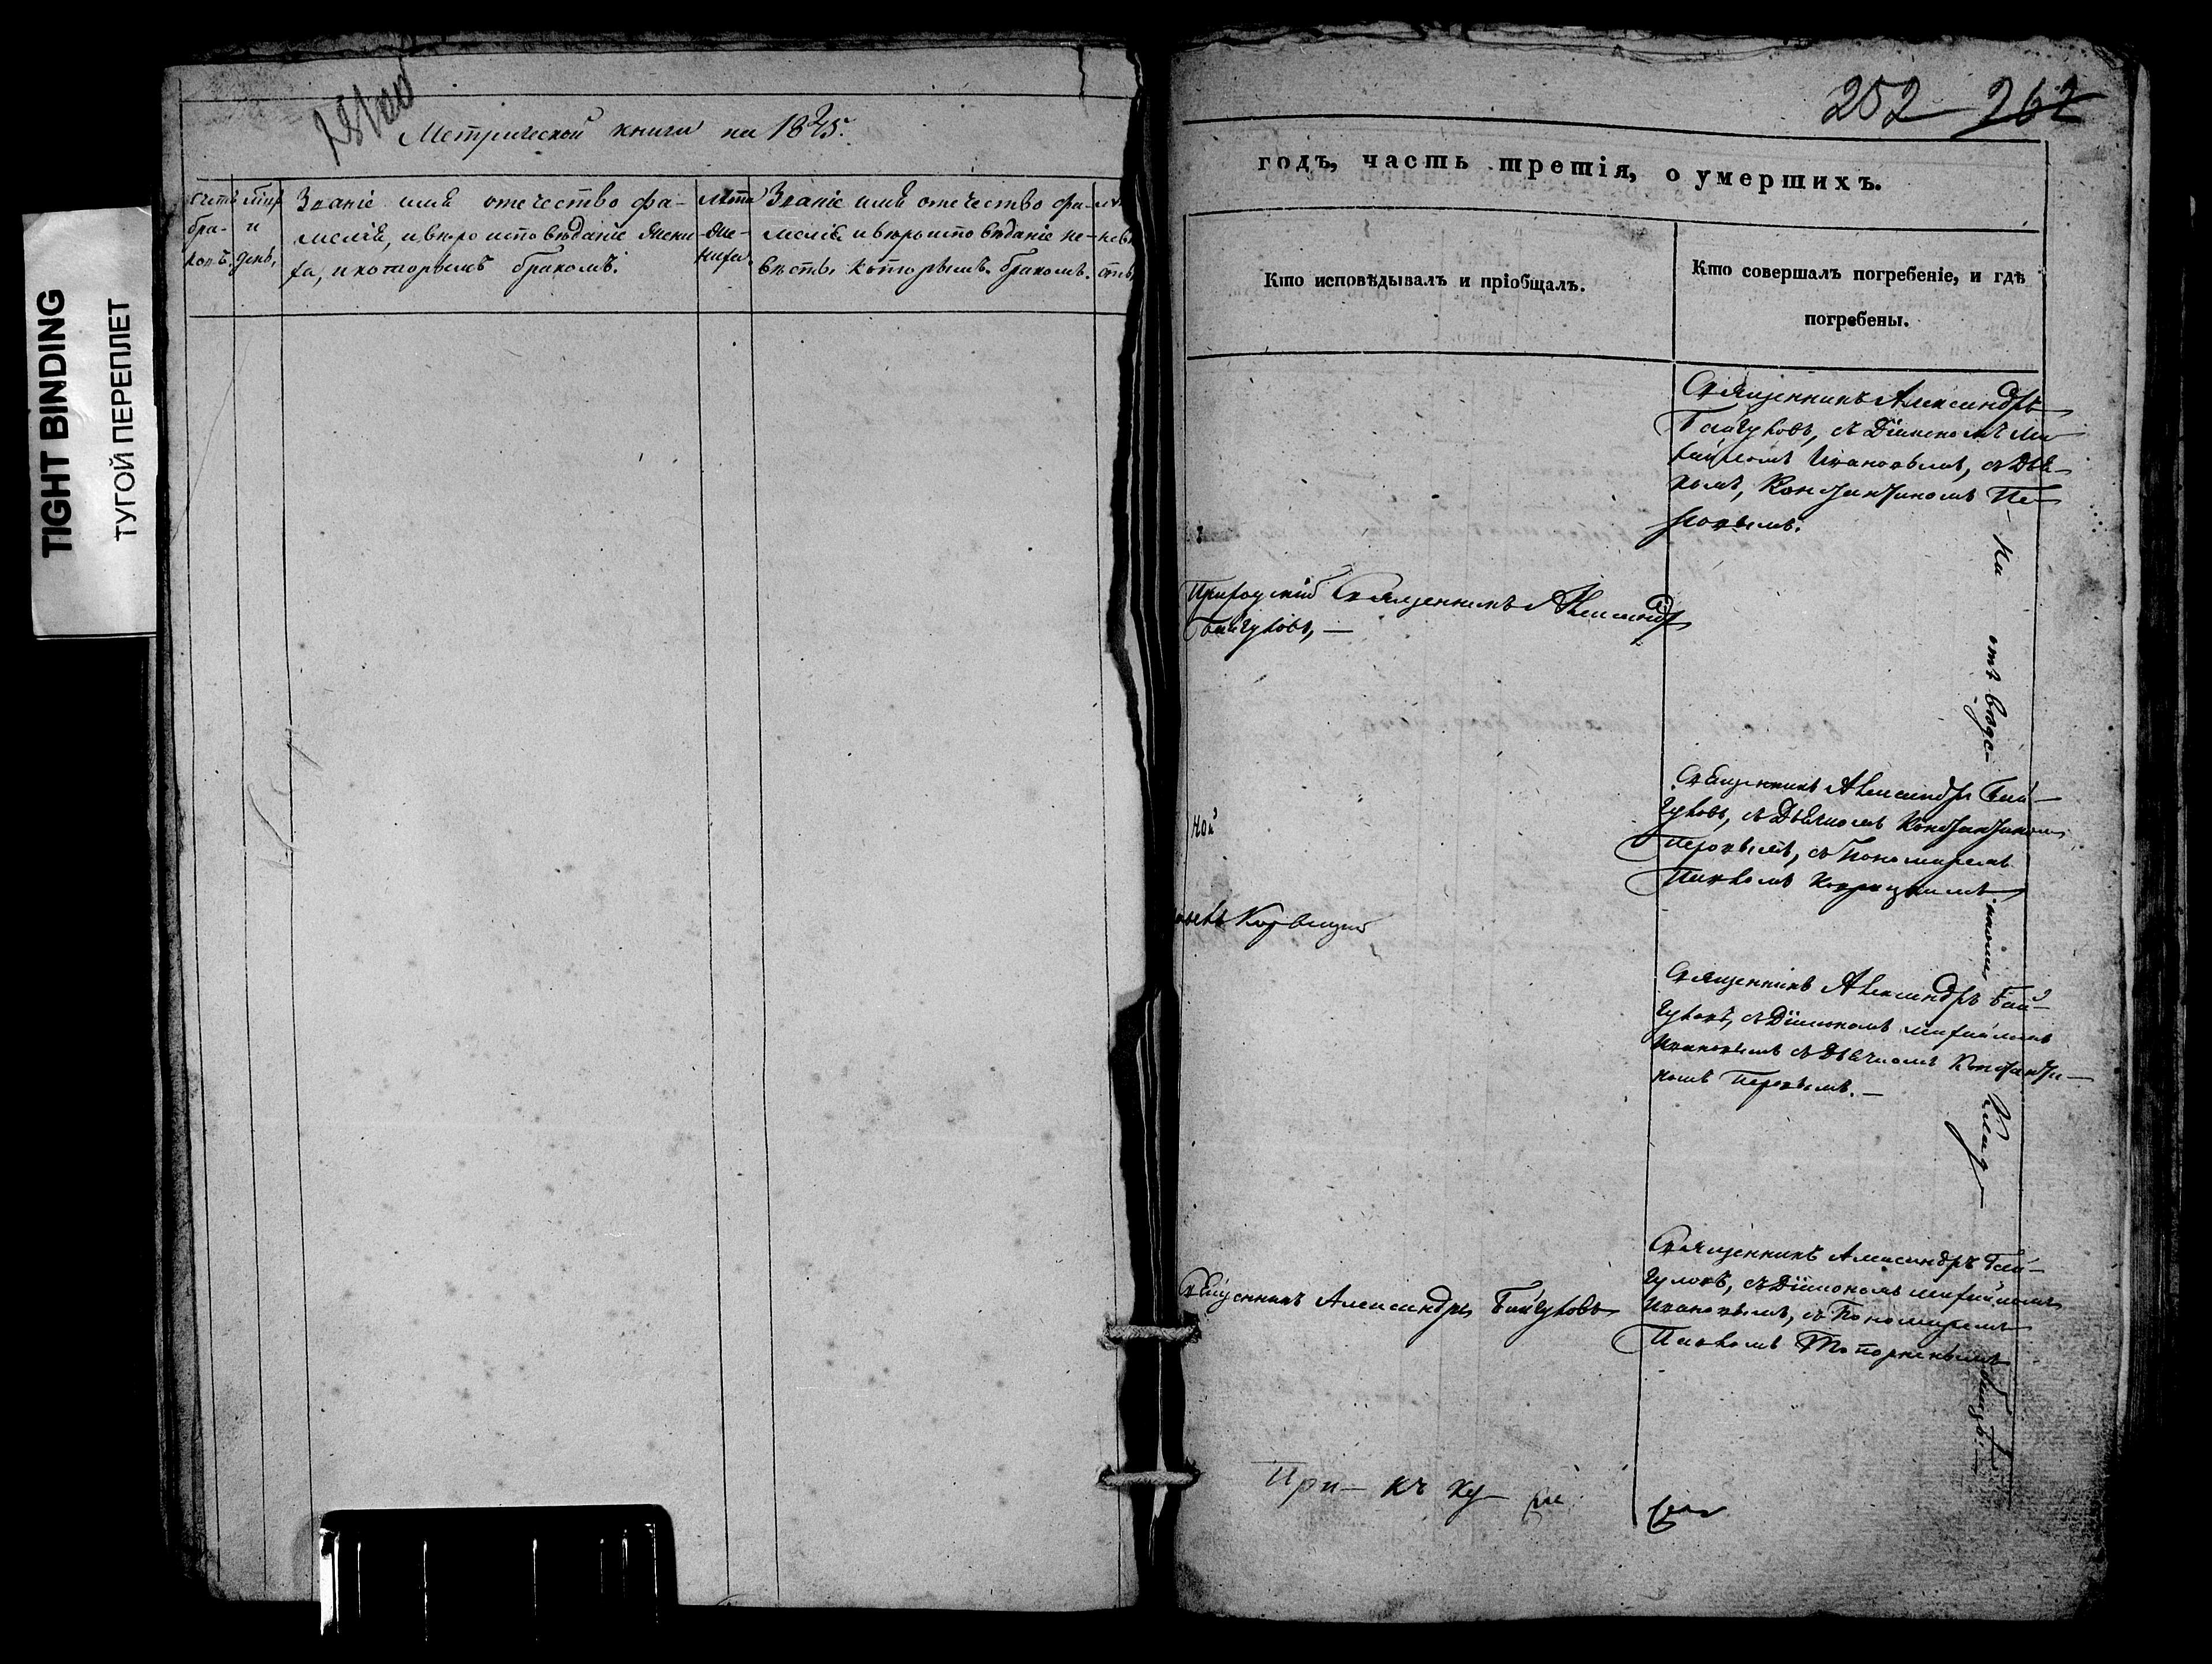 TIGHT BINDING
ТУГОЙ ПЕРЕПЛЕТ
Метрической книги на 1845.
счетъ
бра-
ковъ.
и
день,
Званіе имя отечество фа-
милія, и вѣроисповѣданіе жени-
ха, и которымъ бракомъ.
лѣта
же-
ниха.
Званіе имя отечество фа-
милія и вѣроисповѣданіе не-
вѣсты которымъ бракомъ.
252 262
годъ, часть третія, о умершихъ.
Кто исповѣдывалъ и пріобщалъ.
Кто совершалъ погребеніе, и гдѣ
погребены.
Священникъ Александръ
Байчуховъ, съ Діакономъ Ми-
хайломъ Ивановымъ, съ Дья-
комъ, Константиномъ Пе-
ровымъ.
Приходскій Священникъ Александръ
Байчуховъ, —
Священникъ Александръ Бай-
чуховъ, съ Дьячкомъ Константиномъ
Перовымъ, съ Пономаремъ
Павломъ
ной
Священникъ Александръ Бай-
чуховъ, съ Діакономъ Михайломъ
Ивановымъ съ Дьячкомъ Константи-
номъ Перовымъ. —
Священникъ Александръ Байчуховъ
Священникъ Александръ Бай-
чуховъ, съ Діакономъ Михайломъ
Ивановымъ, съ Пономаремъ
Павломъ
На
Клад-
При- къ